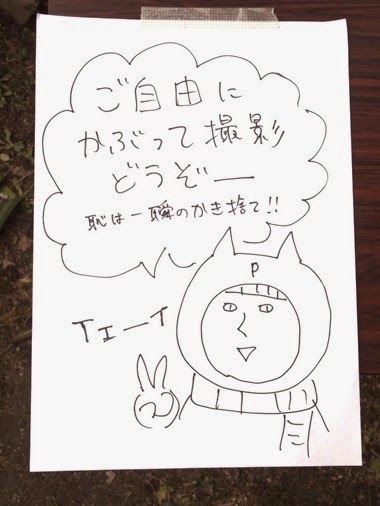 ご自由に
かぶって撮影
どうぞー
恥は一瞬のかき捨て!!
P
イェーイ